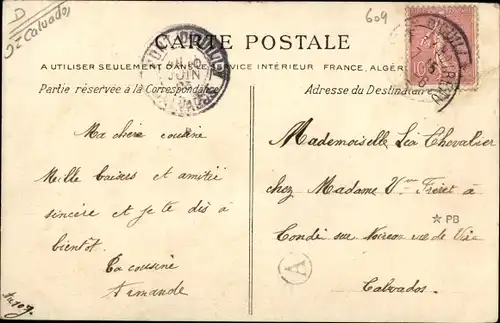 D
Dz Calvados
609
CARTE POSTALE
A UTILISER SEULEMENT DANS LE SERVICE INTÉRIEUR FRANCE, ALGÉR
Partie réservée à la Correspondance
Adresse du Destinataire
JUIN
10
Ma chère cousine
Mille baisers et amitié
sincère et je te dis à
bientôt.
Ta cousine
Armande
Mademoiselle Léa Chevalier
chez Madame Vve Féret à
Condé sur Noireau rue de Vire
Calvados
☆ PB
A